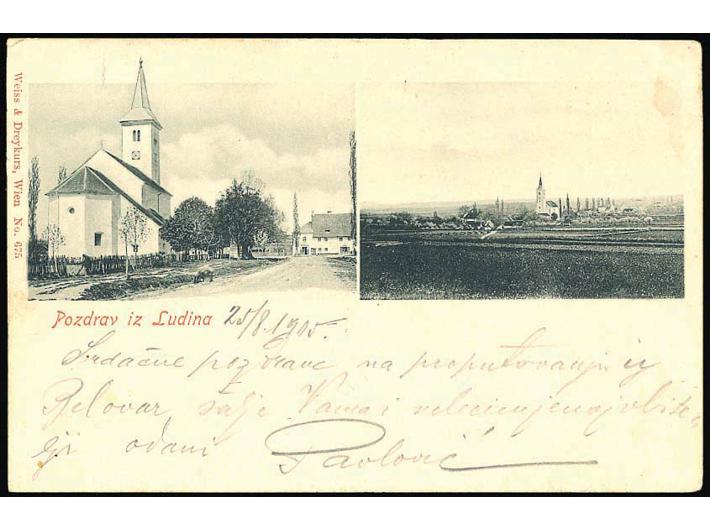 Weiss & Dreykurs, Wien No. 675
Pozdrav iz Ludina 25/8. 1905.
Srdačne pozdrave na proputovanju iz
Belovar, šalje Vama i velecienjenoj obite-
lji odani Pavlović